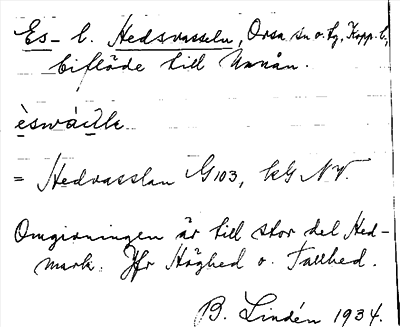 Es- l. Hedsvasseln, Orsa sn o. tg, Kopp. l.,
biflöde till Unnån.
èswáslc
= Hedvasslan G103, kG NV.
Omgivningen är till stor del Hed-
mark. Jfr Höghed o. Tallhed.
B. Lindén 1934.